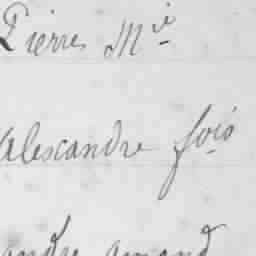 Pierre Mie
Alexandre fois
andre amand